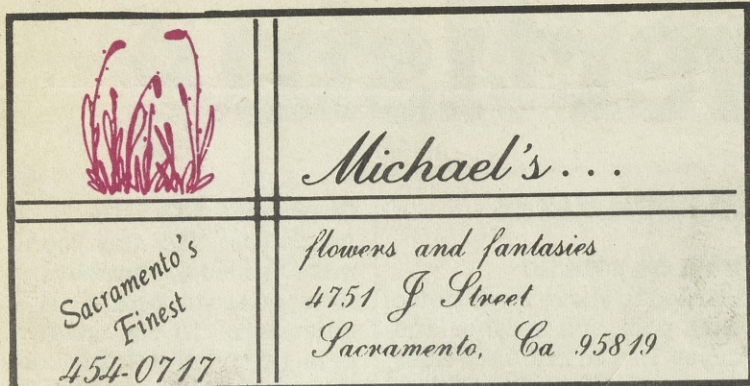 Michael's...
Sacramento's
Finest
454-0717
flowers and fantasies
4751 J Street
Sacramento, Ca 95819